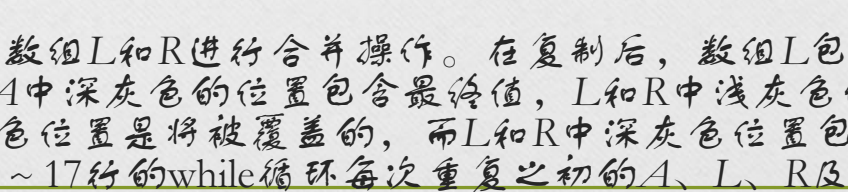 数组L和R进行合并操作。在复制后，数组L包
A中深灰色的位置包含最终值，L和R中浅灰色
色位置是将被覆盖的，而L和R中深灰色位置包
～17行的while循环每次重复之初的A、L、R及